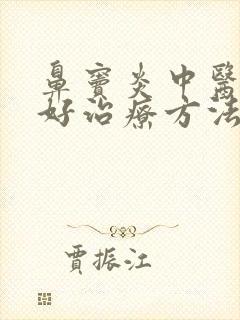 鼻竇炎中醫
好治療方法
賈振江